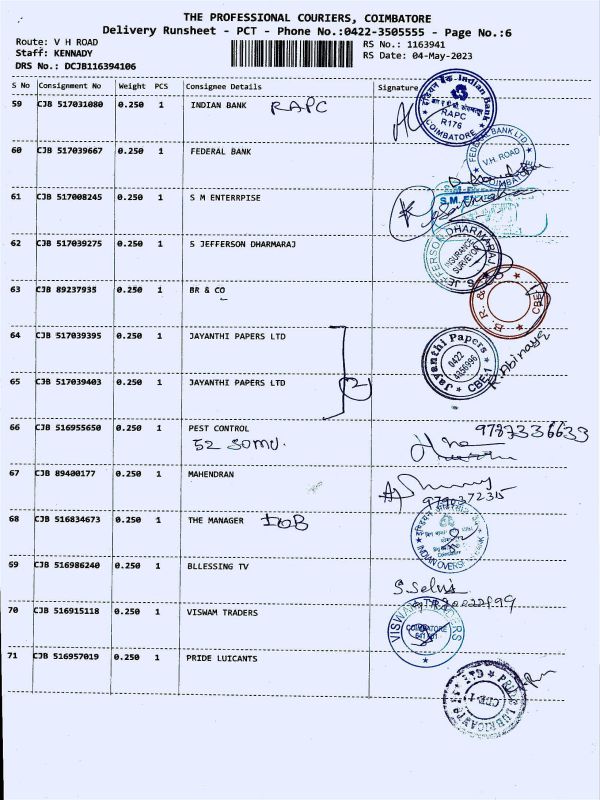 THE PROFESSIONAL COURIERS, COIMBATORE
Delivery Runsheet - PCT - Phone No.:0422-3505555 - Page No.:6
Route: V H ROAD
Staff: KENNADY
DRS No.: DCJB116394106
RS No.: 1163941
RS Date: 04-May-2023
S No Consignment No Weight PCS Consignee Details Signature
59 CJB 517031080 0.250 1 INDIAN BANK RAPC
Indian Bank
RAPC
R176
COIMBATORE
60 CJB 517039667 0.250 1 FEDERAL BANK
FEDERAL BANK LTD
V.H. ROAD
COIMBATORE
61 CJB 517008245 0.250 1 S M ENTERRPISE
62 CJB 517039275 0.250 1 S JEFFERSON DHARMARAJ
S. JEFFERSON DHARMARAJ
INSURANCE
SURVEYOR
63 CJB 89237935 0.250 1 BR & CO
B.R. & CO
CBE-1
64 CJB 517039395 0.250 1 JAYANTHI PAPERS LTD
Jayanthi Papers
0422
4856996
CBE-1
R.Abinaya
65 CJB 517039403 0.250 1 JAYANTHI PAPERS LTD
2
66 CJB 516955650 0.250 1 PEST CONTROL
52 SOMU.
9787336633
67 CJB 89400177 0.250 1 MAHENDRAN
68 CJB 516834673 0.250 1 THE MANAGER IOB
69 CJB 516986240 0.250 1 BLLESSING TV
70 CJB 516915118 0.250 1 VISWAM TRADERS
VISWAM TRADERS
COIMBATORE
71 CJB 516957019 0.250 1 PRIDE LUICANTS
PRIDE LUBRICANTS
CBE-1